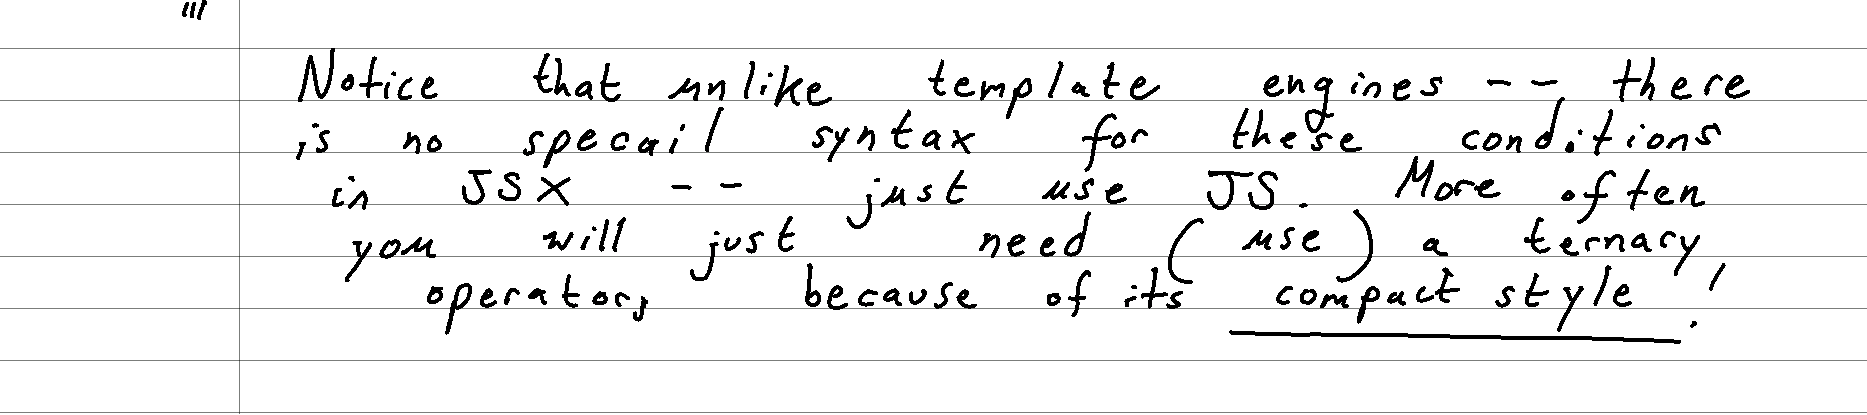 Notice that unlike template engines -- there
is no specail syntax for these conditions
in JSX -- just use JS. More often
you will just need (use) a ternary
operator, because of its compact style!